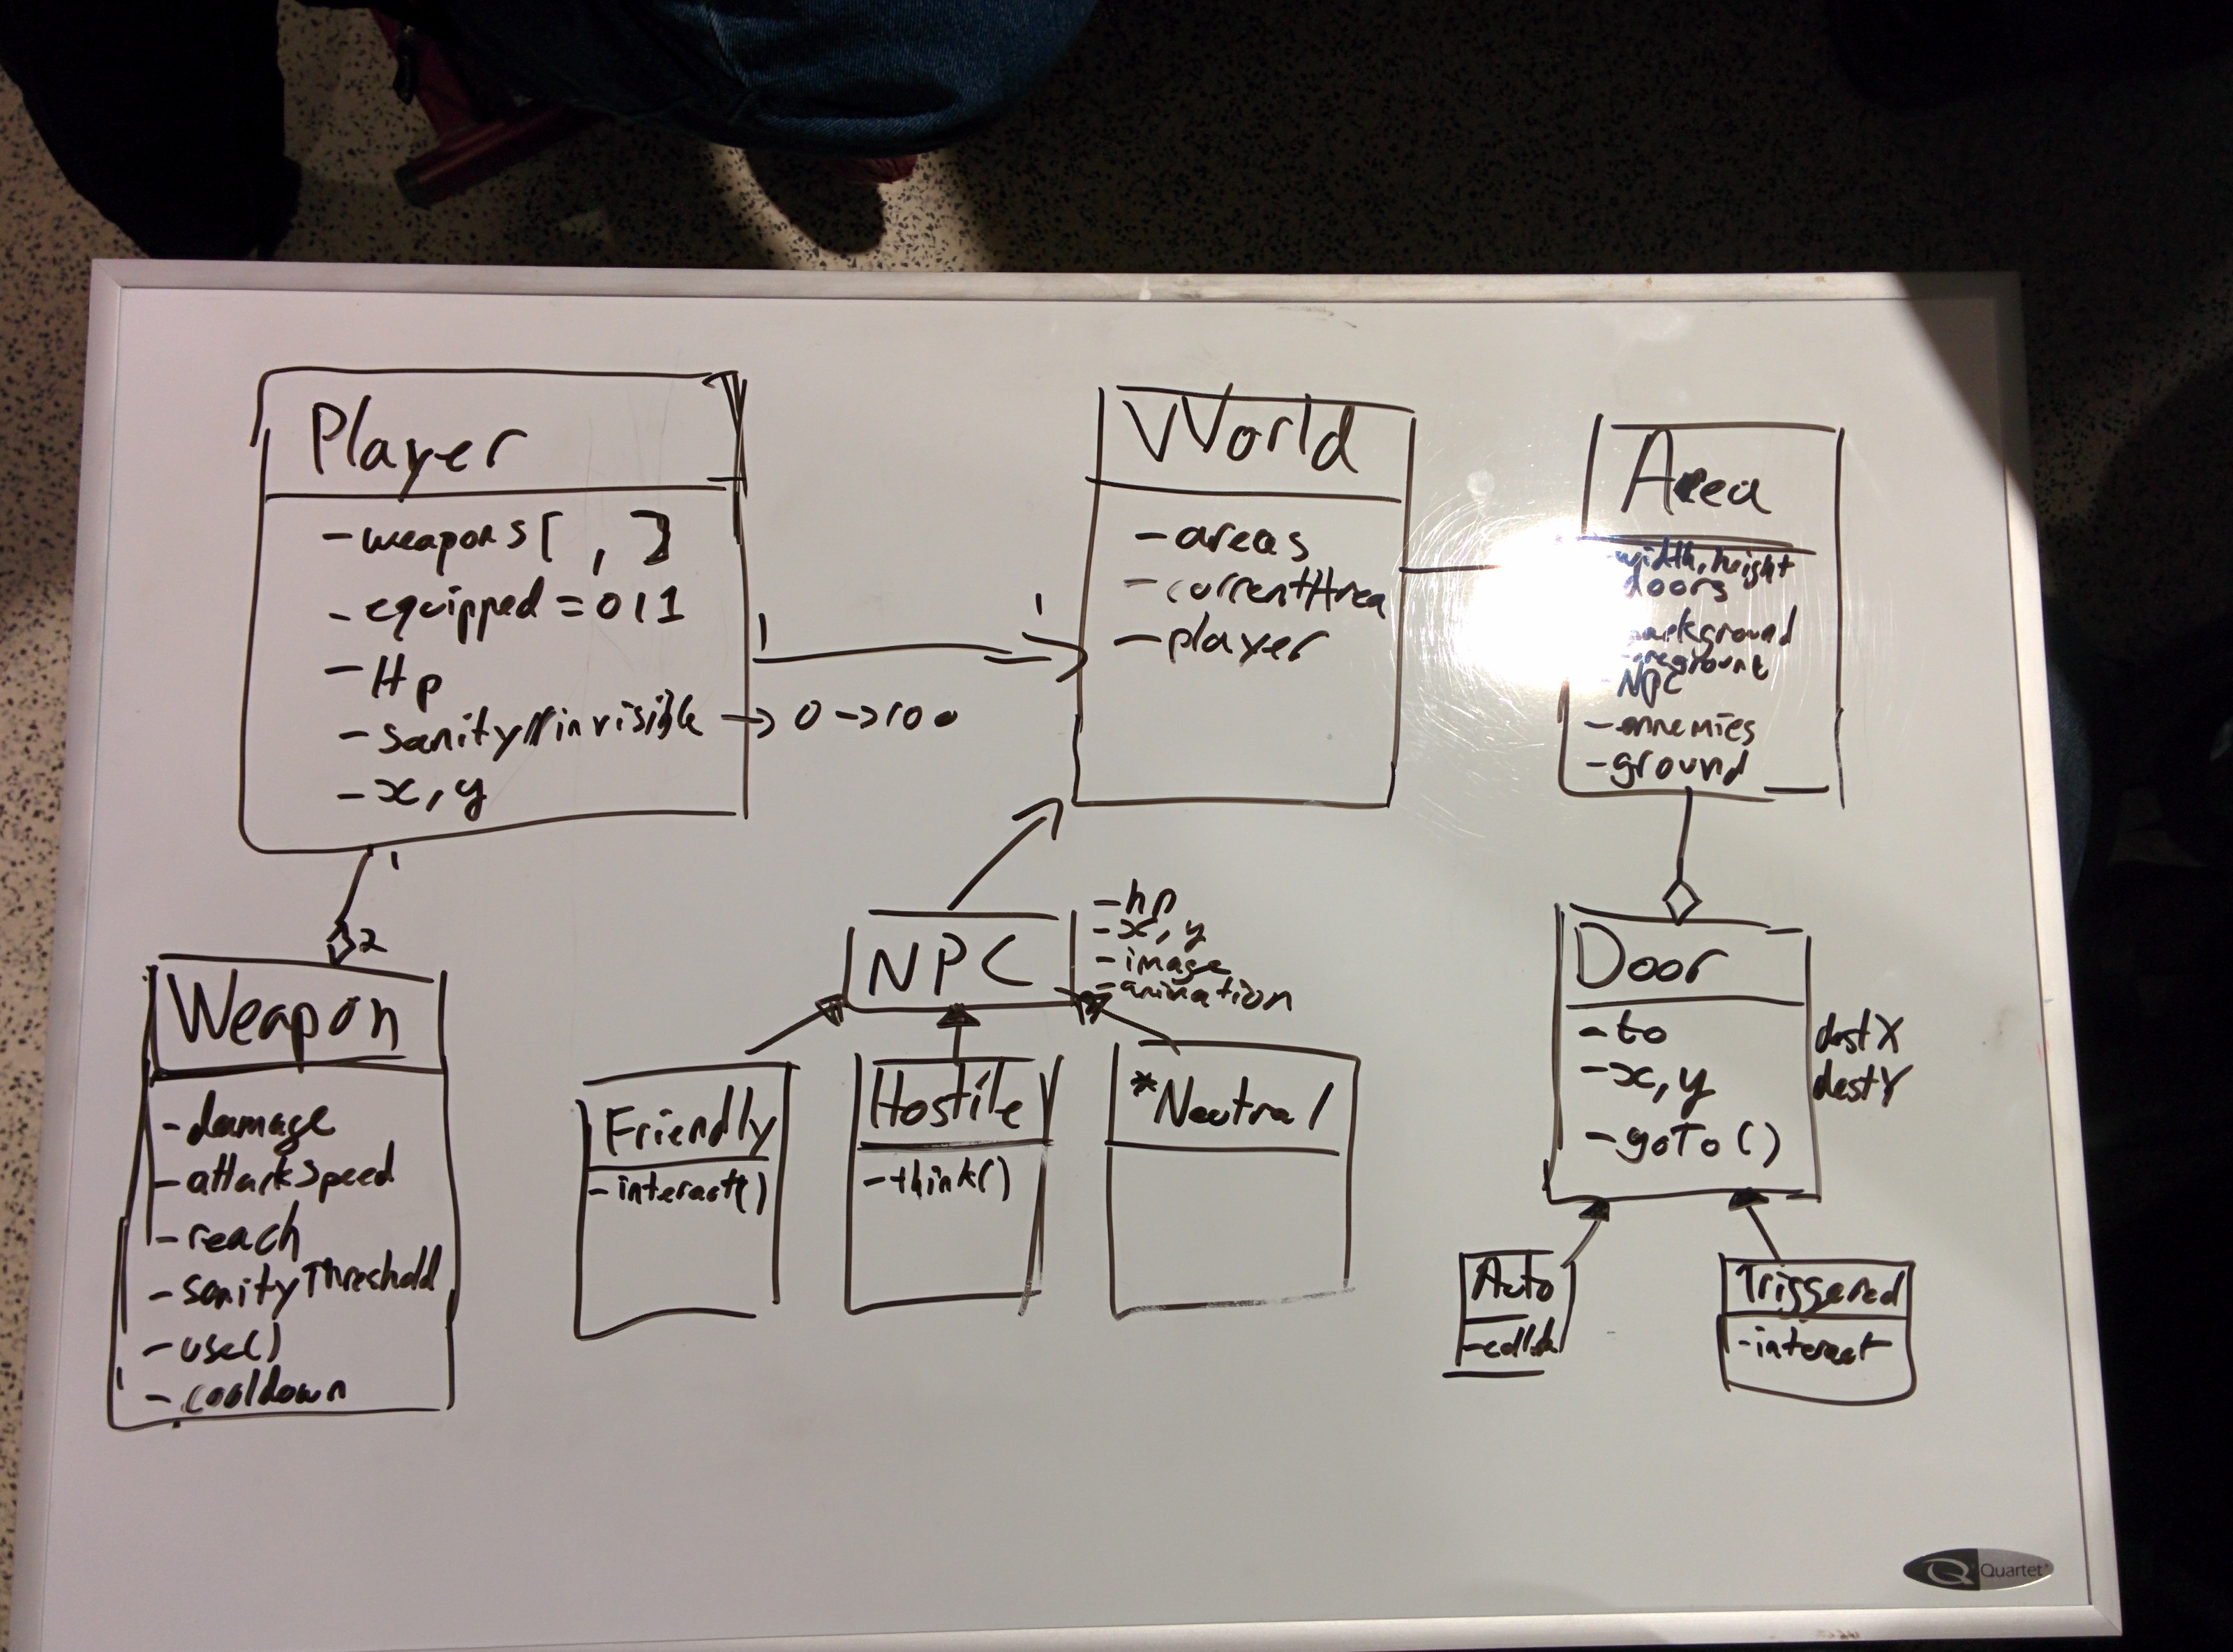 Player
-weapons[ , ]
-equipped=011
-Hp
-sanity//invisible → 0→100
-x,y
1
1
World
-areas
-currentArea
-player
Area
-width,height
doors
background
NPC
-ennemies
-ground
1
2
Weapon
-damage
-attackSpeed
-reach
-sanityThreshold
-use()
-cooldown
NPC
-hp
-x,y
-image
-animation
Friendly
-interact()
Hostile
-think()
*Neutral
Door
-to
-x,y
-goTo()
destX
destY
Auto
Triggered
-interact
Quartet